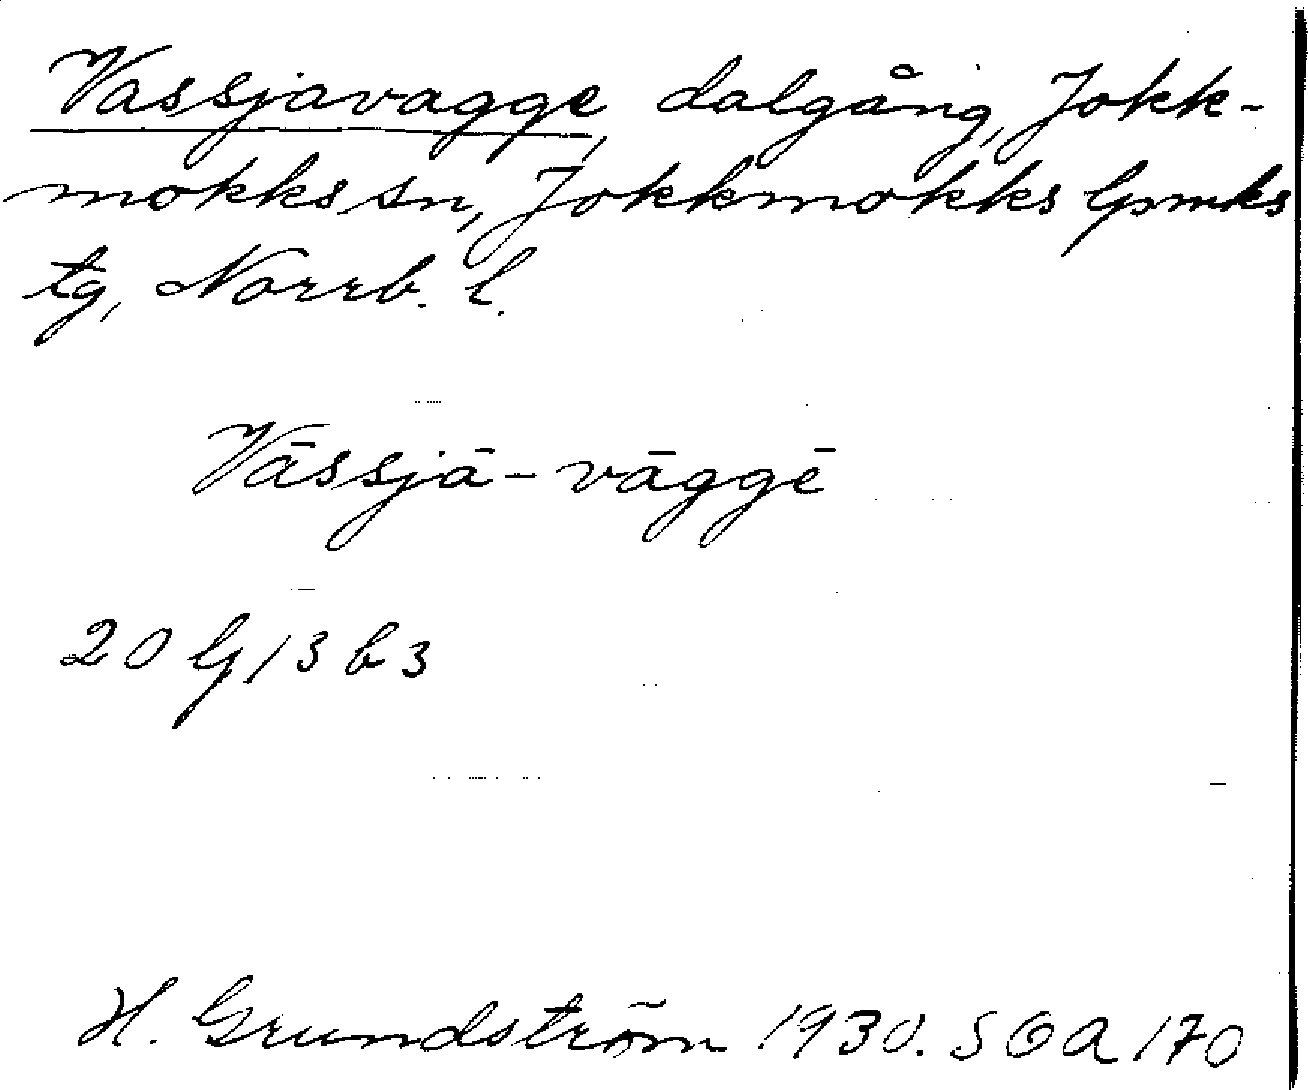 Vassjavagge, dalgång, Jokk-
mokks sn, Jokkmokks lpmks
tg, Norrb. l.
Vāssjā-vāggē
20 G/3 b3
H. Grundström 1930. SOA 170